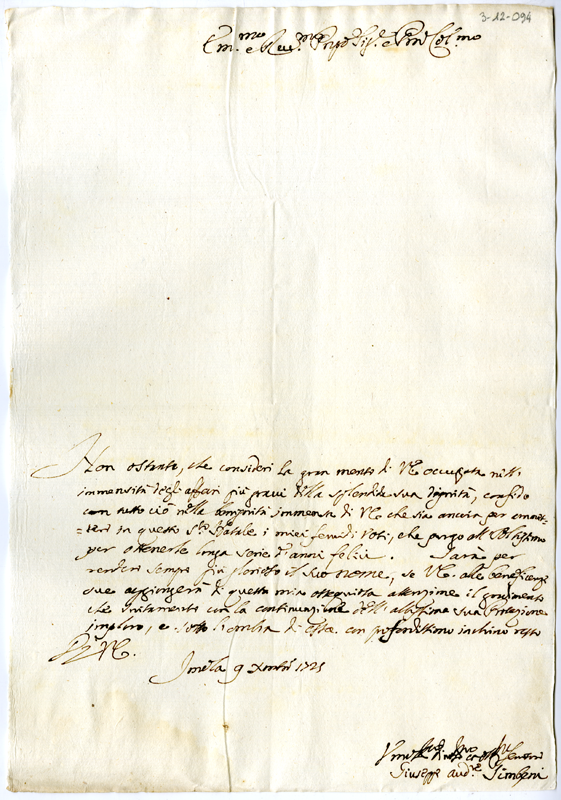 3-12-094
Em.mo e Rev.mo Prpē Sig.r e Pron Col.mo
Non ostante, che consideri la gran mente di VE occupata nelle
immensità degli affari più gravi della splendida sua dignità, confido
con tutto ciò nella benignità immensa di VE che sia ancora per ammet=
=tere in questo S.to Natale i miei fervidi voti, che porgo all'Altissimo
per ottenerle longa serie d'anni felici. per
rendere sempre più glorioso il suo nome, se VE. alle beneficenze
sue aggiongerà di questa mia ossequiosa attenzione il gradimento
che unitamente con la continuazione dell'altissima sua Protezione
imploro, e sotto l'ombra di essa con profondissimo inchino resto
D VE.
Imola 9 Xmbre 1725
Um.mo Servitore
Giuseppe And.